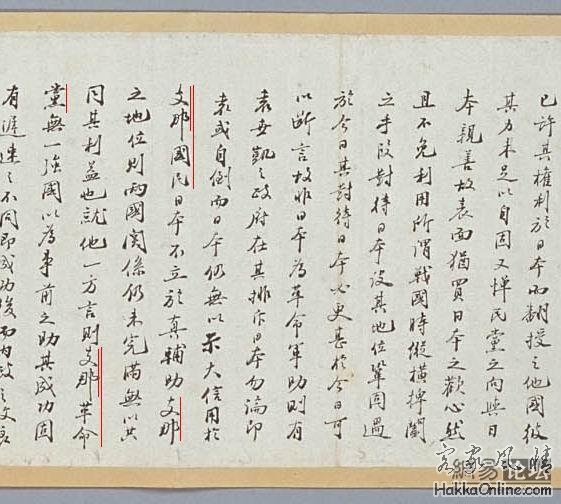 已許其權利於日本而翻授之他國彼
其力未足以自固又憚民黨之向與日
本親善故表面猶買日本之歡心然
且不免利用所謂戰國時縱橫捭闔
之手段對待日本設其地位鞏固過
於今日其對待日本必更甚於今日可
以斷言故非日本為革命軍助則有
袁世凱之政府在其排斥日本勿論即
袁或自倒而日本仍無以示大信用於
支那國民日本不立於真輔助支那
之地位則兩國關係仍未完滿無以共
同其利益也就他一方言則支那革命
黨無一強國以為事前之助其成功固
有遲速之不同即成功後而內政之
客家風情
论坛
HakkaOnline.com